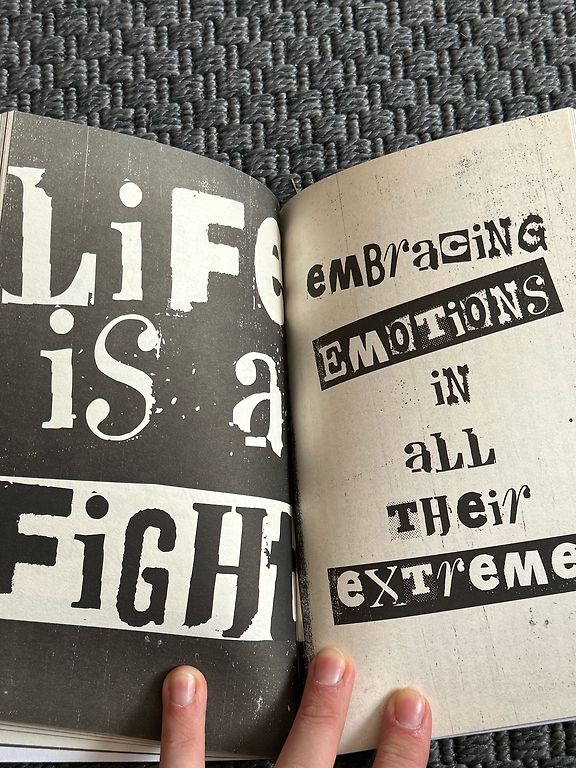 LiFe
iS a
FiGHT
eMBraCiNG
EMOTiONS
iN
aLL
THeir
eXTreMe